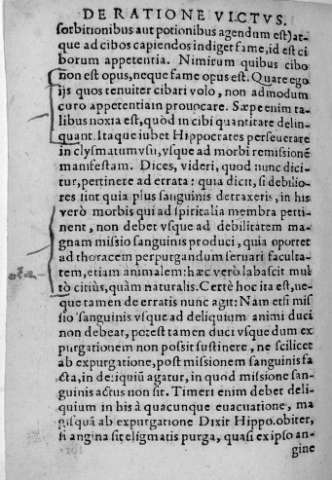 DE RATIONE VICTVS.
sorbitionibus aut potionibus agendum est) at-
que ad cibos capiendos indiget fame, id est ci
borum appetentia. Nimirum quibus cibo
non est opus, neque fame opus est. Quare ego
ijs quos tenuiter cibari volo, non admodum
curo appetentiam prouocare. Sæpe enim ta
libus noxia est, quod in cibi quantitate delin-
quant. Itaque iubet Hippocrates perseuerare
in clysmatum vsu, vsque ad morbi remissionẽ
manifestam. Dices, videri, quod nunc dici-
tur, pertinere ad errata: quia dicit, si debilio-
res sint quia plus sanguinis detraxeris, in his
verò morbis qui ad spiritalia membra perti-
nent, non debet vsque ad debilitatem ma-
gnam missio sanguinis produci, quia oportet
ad thoracem perpurgandum seruari faculta-
tem, etiam animalem: hæc verò labascit mul
tò citiùs, quàm naturalis. Certè hoc ita est, ne-
que tamen de erratis nunc agit: Nam etsi mis
sio sanguinis vsque ad deliquium animi duci
non debeat, potest tamen duci vsque dum ex
purgationem non possit sustinere, ne scilicet
ab expurgatione, post missionem sanguinis fa
cta, in deliquiũ agatur, in quod missione san-
guinis actus non sit. Timeri enim debet deli-
quium in his à quacunque euacuatione, ma
gisquã ab expurgatione Dixit Hippo. obiter,
si angina sit eligmatis purga, quasi ex ipso an-
gine